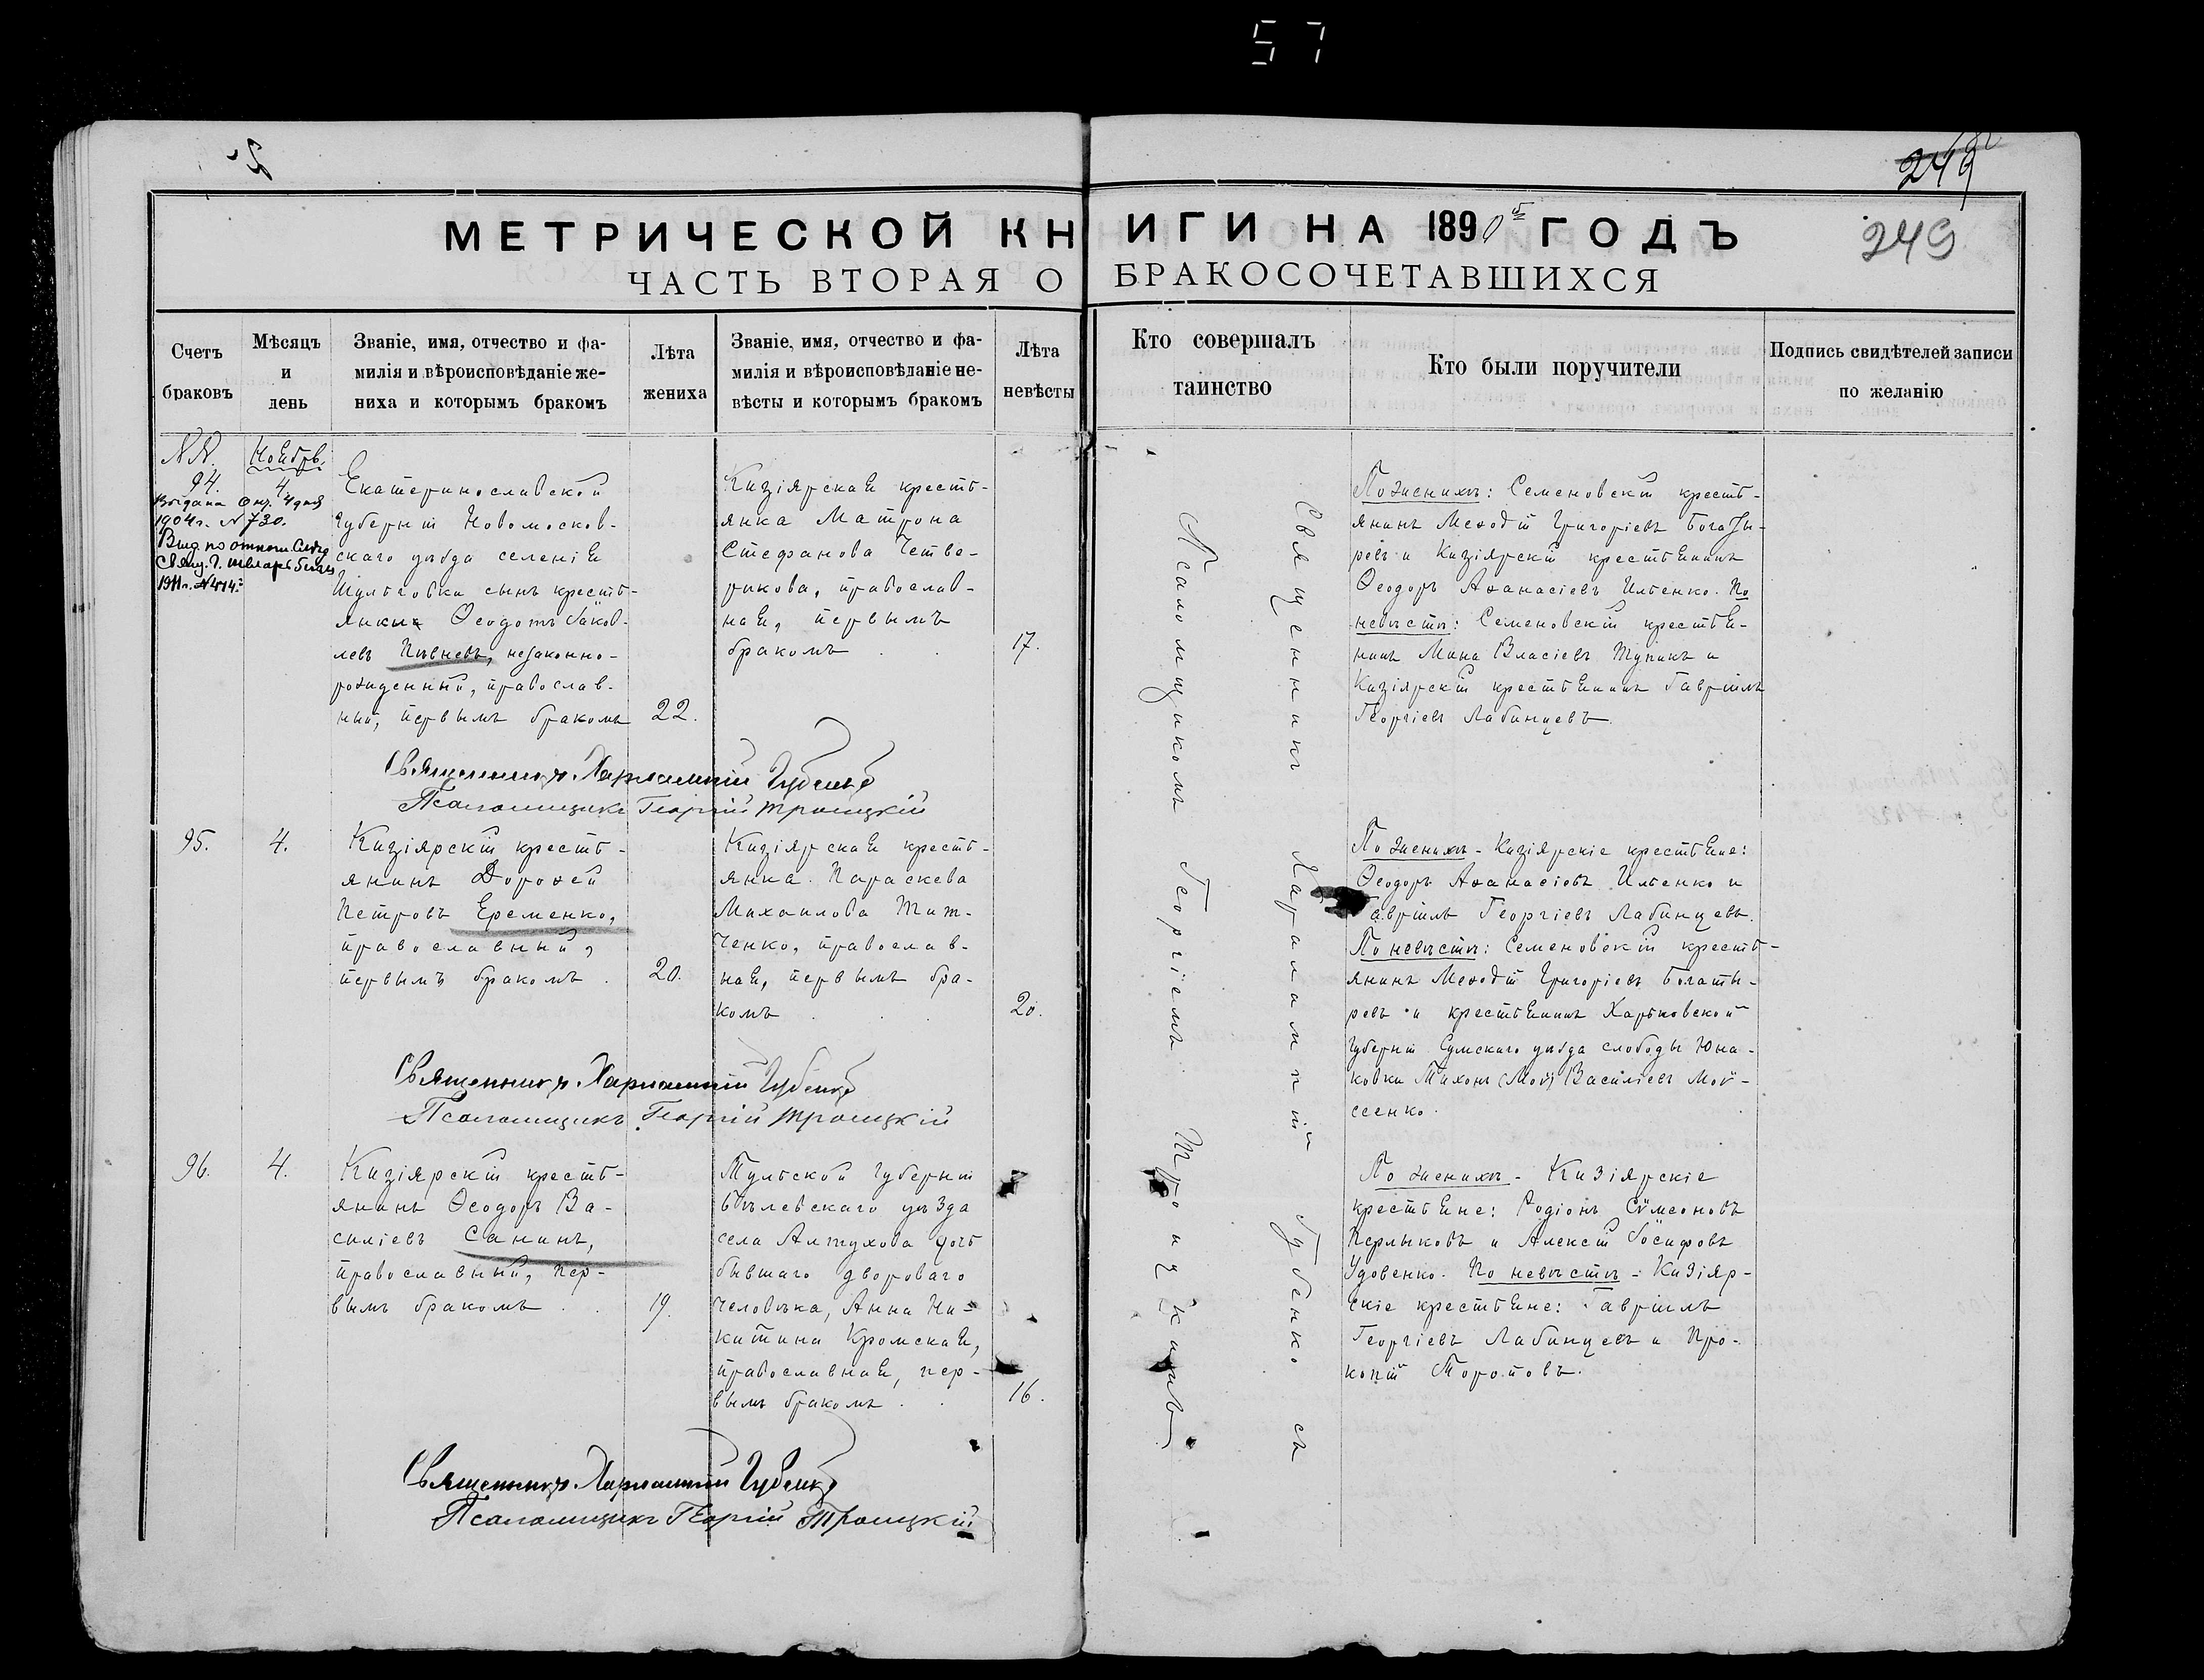 57
249
МЕТРИЧЕСКОЙ КНИГИ НА 1890й ГОДЪ
249
ЧАСТЬ ВТОРАЯ О БРАКОСОЧЕТАВШИХСЯ
Счетъ
браковъ
Мѣсяцъ
и
день
Званіе, имя, отчество и фа-
милія и вѣроисповѣданіе же-
ниха и которымъ бракомъ
Лѣта
жениха
Званіе, имя, отчество и фа-
милія и вѣроисповѣданіе не-
вѣсты и которымъ бракомъ
Лѣта
невѣсты
Кто совершалъ
таинство
Кто были поручители
Подпись свидѣтелей записи
по желанію
NN.
94.
1904 г. N 730.
1911 г. N 414.
Ноябрь.
4.
Екатеринославской
губерніи Новомосков-
скаго уѣзда селенія
сынъ кресть-
янки Ѳеодотъ Іаков-
левъ Пѣвневъ, незаконно-
рожденный, православ-
ный, первымъ бракомъ
22.
Кизіярская кресть-
янка Матрона
Стефанова Четве-
рикова, православ-
ная, первымъ
бракомъ
17.
Священникъ Харлампій Губенко
Псаломщикъ Георгій Троицкій
По женихѣ: Семеновскій кресть-
янинъ Меѳодій Григоріевъ Богаты-
ревъ и Кизіярскій крестьянинъ
Ѳеодоръ Аѳанасіевъ Ильенко. По
невѣстѣ: Семеновскій крестья-
нинъ Мина Власіевъ Тупикъ и
Кизіярскій крестьянинъ Гавріилъ
Георгіевъ Лабинцевъ.
95.
4.
Кизіярскій кресть-
янинъ Дороѳей
Петровъ Еременко,
православный,
первымъ бракомъ.
20.
Кизіярская кресть-
янка Параскева
Михаилова Тит-
ченко, православ-
ная, первымъ бра-
комъ
20.
Священникъ Харлампій Губенко
Псаломщикъ Георгій Троицкій
По женихѣ - Кизіярскіе крестьяне:
Ѳеодоръ Аѳанасіевъ Ильенко и
Гавріилъ Георгіевъ Лабинцевъ.
По невѣстѣ: Семеновскій кресть-
янинъ Меѳодій Григоріевъ Богаты-
ревъ и крестьянинъ Харьковской
губерніи Сумскаго уѣзда слободы Юна-
ковки Тихонъ (Мой) Василіевъ Мой-
сеенко.
96.
4.
Кизіярскій кресть-
янинъ Ѳеодоръ Ва-
силіевъ Санинъ,
православный, пер-
вымъ бракомъ
19.
Тульской губерніи
Бѣлевскаго уѣзда
села Алтухова дочь
бывшаго двороваго
человѣка, Анна Ни-
китина Кромская,
православная, пер-
вымъ бракомъ
16.
Священникъ Харлампій Губенко
Псаломщикъ Георгій Троицкій
По женихѣ - Кизіярскіе
крестьяне: Родіонъ Сѵмеоновъ
Перлыковъ и Алексій Іосифовъ
Удовенко. По невѣстѣ - Кизіяр-
скіе крестьяне: Гавріилъ
Георгіевъ Лабинцевъ и Про-
копій Торотовъ.
Священникъ Харлампій Губенко съ
Псаломщикомъ Георгіемъ Троицкимъ